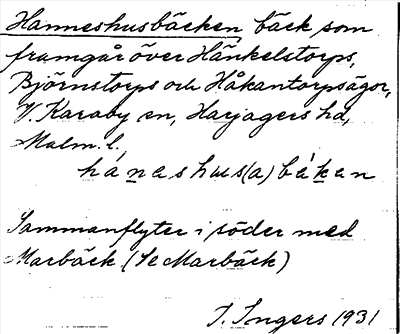 Hanneshusbäcken bäck som
framgår över Hänkelstorps,
Björnstorps och Håkantorpsägor,
V. Karaby sn, Harjagers hd,
Malm. l.
hánashus(a)bákan
Sammanflyter i söder med
Marbäck (Se Marbäck)
I. Ingers 1931